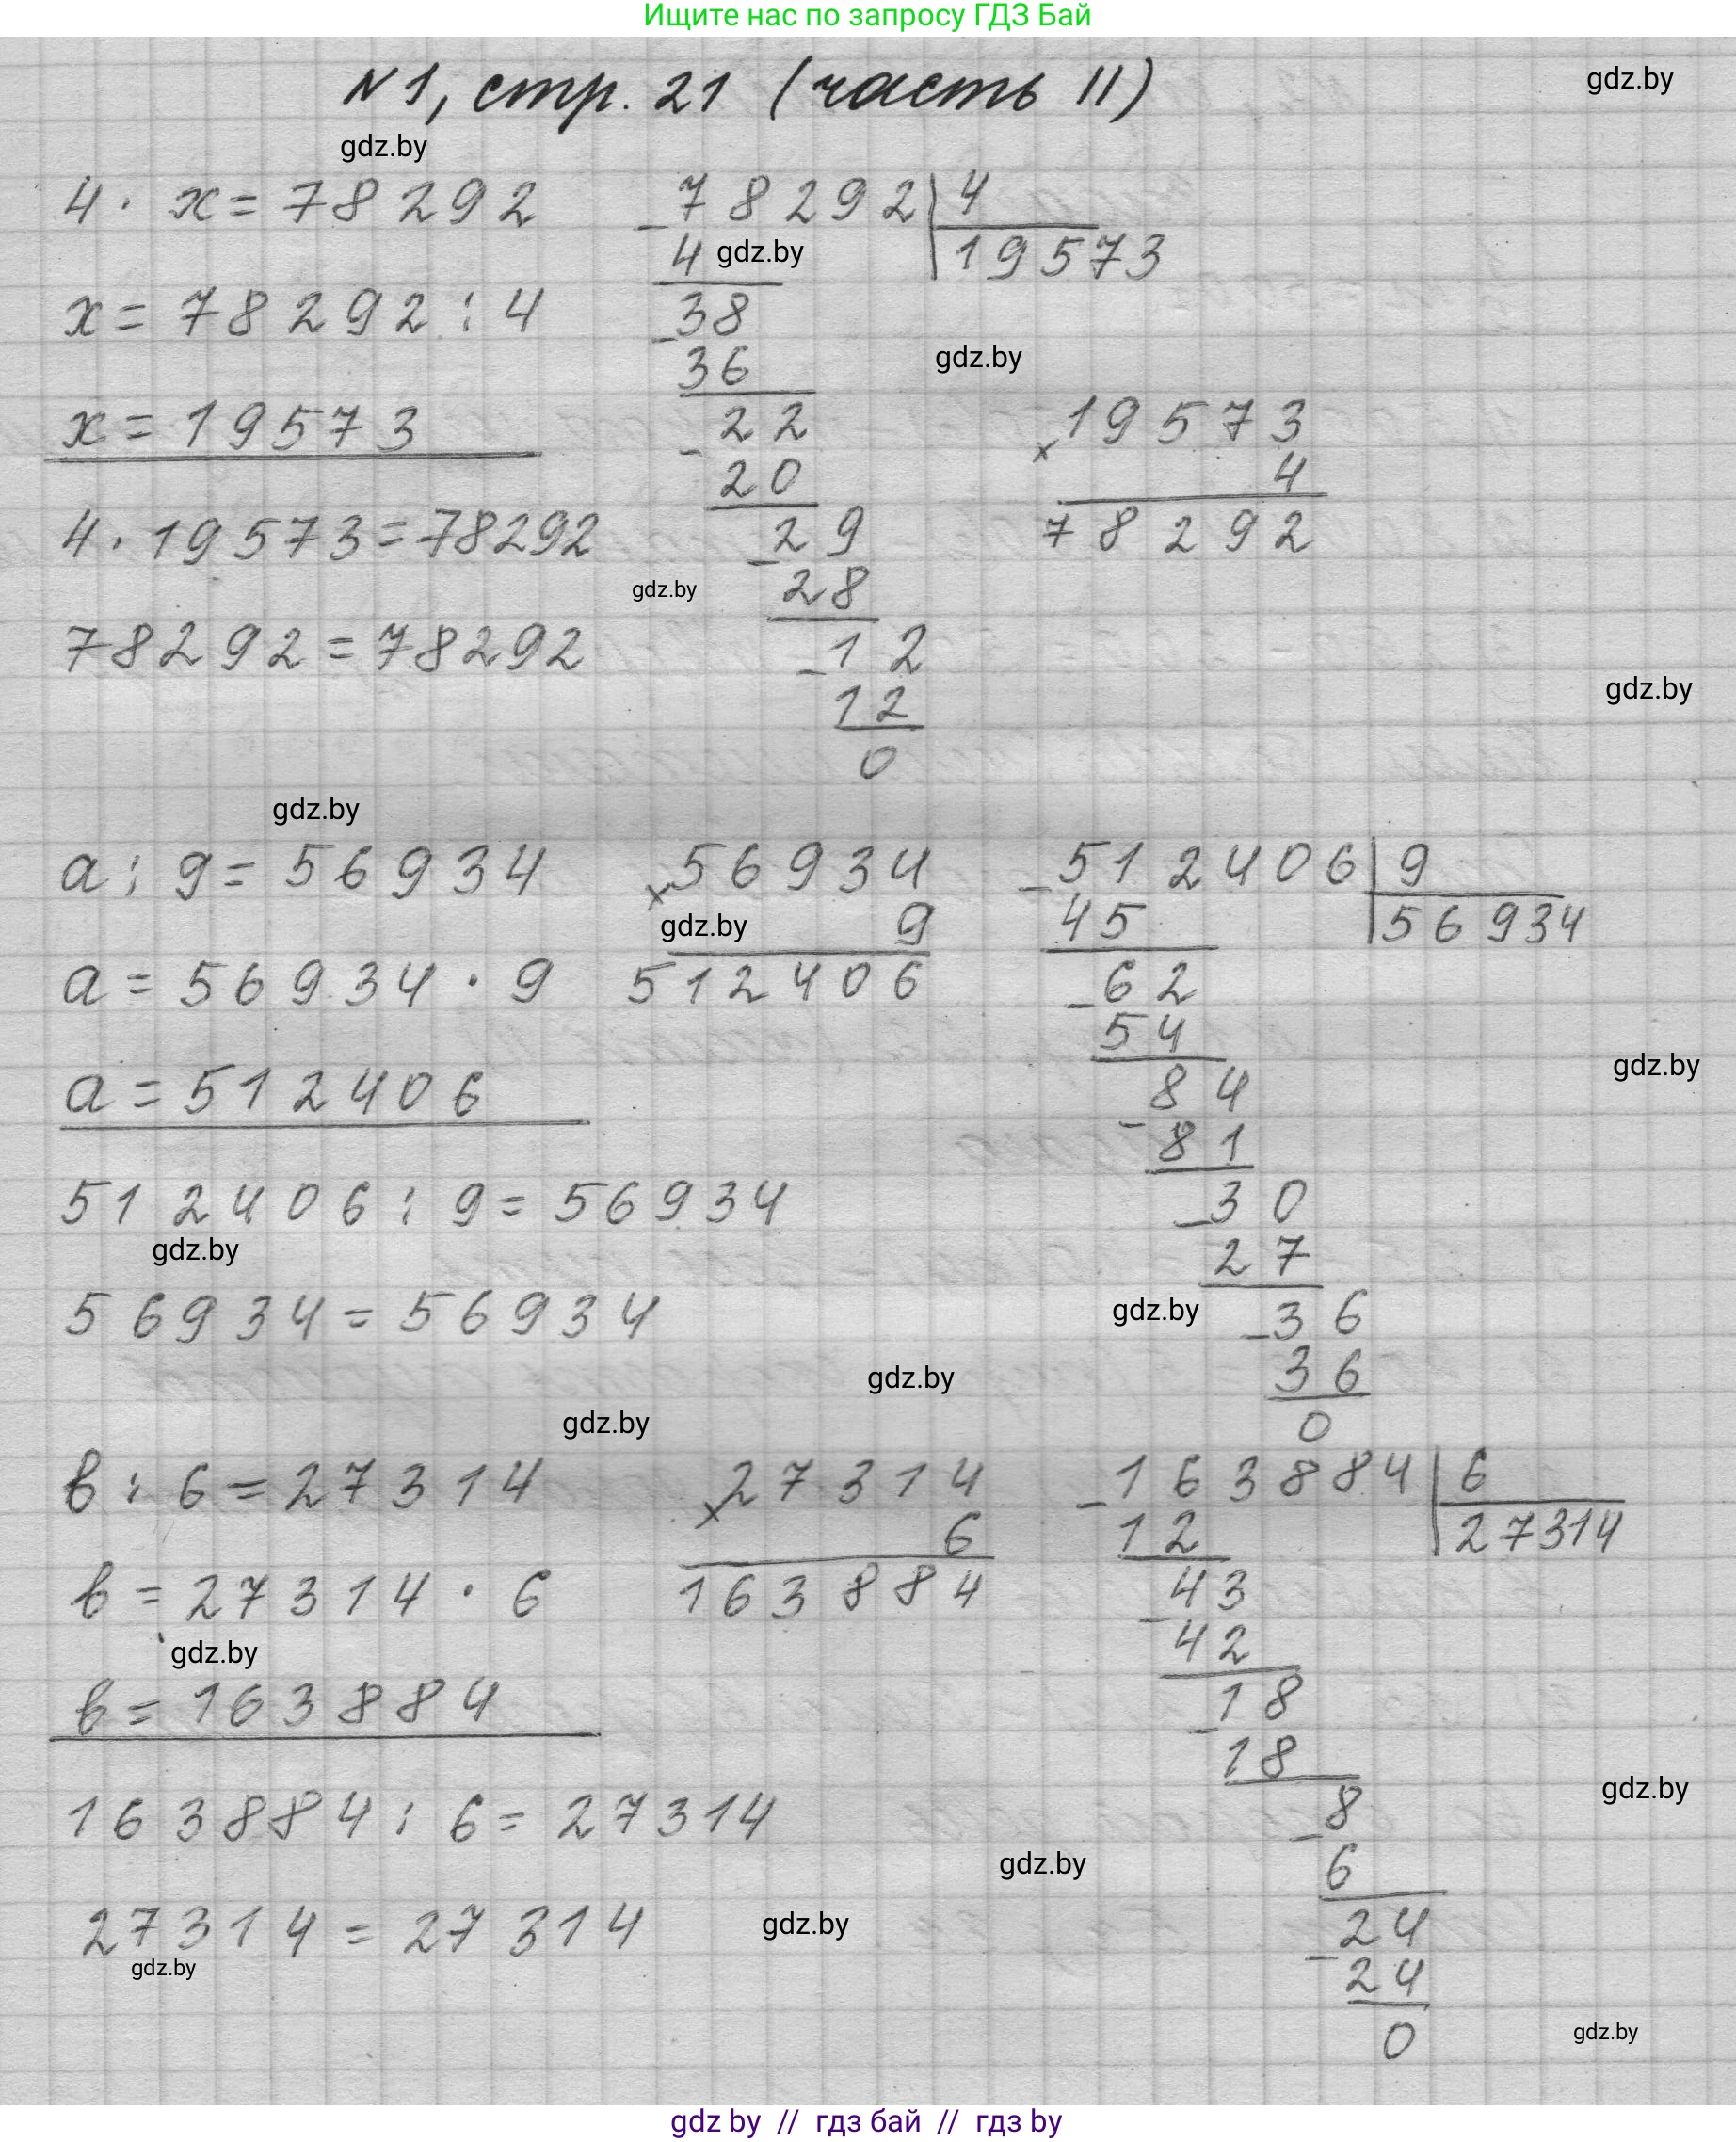 Ищите нас по запросу ГДЗ Бай
N 1, стр. 21 (часть II)
gdz.by
gdz.by
4 · x = 78292
x = 78292 : 4
x = 19573
4 · 19573 = 78292
78292 = 78292
78292 | 4
4
19573
gdz.by
38
36
22
20
29
28
12
12
0
gdz.by
gdz.by
× 19573
4
78292
gdz.by
gdz.by
a : 9 = 56934
a = 56934 · 9
a = 512406
512406 : 9 = 56934
gdz.by
56934 = 56934
× 56934
gdz.by
9
512406
512406 | 9
45
56934
62
54
84
81
30
27
36
36
0
gdz.by
gdz.by
gdz.by
gdz.by
в : 6 = 27314
в = 27314 · 6
gdz.by
в = 163884
163884 : 6 = 27314
27314 = 27314
gdz.by
× 27314
6
163884
163884 | 6
12
27314
43
42
18
18
8
6
24
24
0
gdz.by
gdz.by
gdz.by
gdz.by
gdz by // гдз бай // гдз by